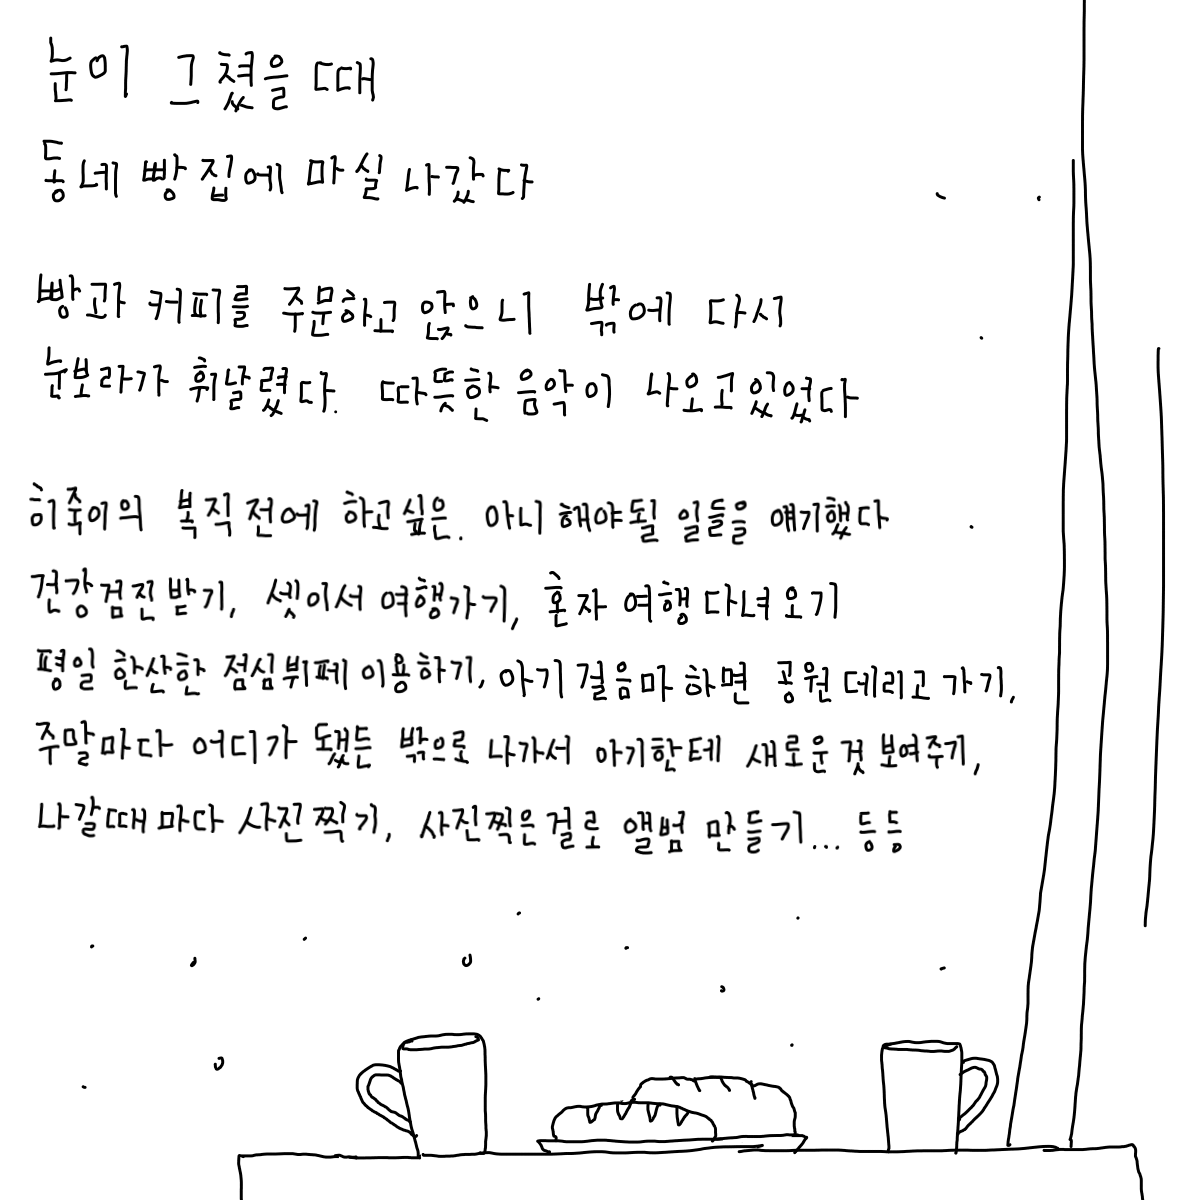 눈이 그쳤을 때
동네 빵집에 마실 나갔다
빵과 커피를 주문하고 앉으니 밖에 다시
눈보라가 휘날렸다. 따뜻한 음악이 나오고있었다
히죽이의 복직 전에 하고싶은. 아니 해야될 일들을 얘기했다
건강검진 받기, 셋이서 여행가기, 혼자 여행 다녀오기
평일 한산한 점심뷔페 이용하기, 아기 걸음마 하면 공원 데리고 가기,
주말마다 어디가 됐든 밖으로 나가서 아기한테 새로운 것 보여주기,
나갈때 마다 사진 찍기, 사진찍은걸로 앨범 만들기... 등등